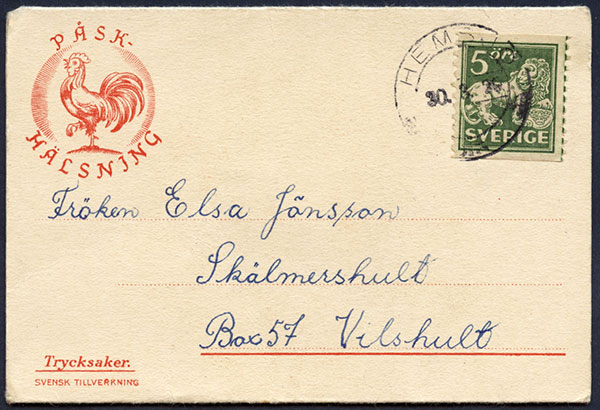 PÅSK-
HÄLSNING
5 ÖRE
SVERIGE
30.
Fröken Elsa Jönsson
Skälmershult
Box 57 Vilshult
Trycksaker.
SVENSK TILLVERKNING